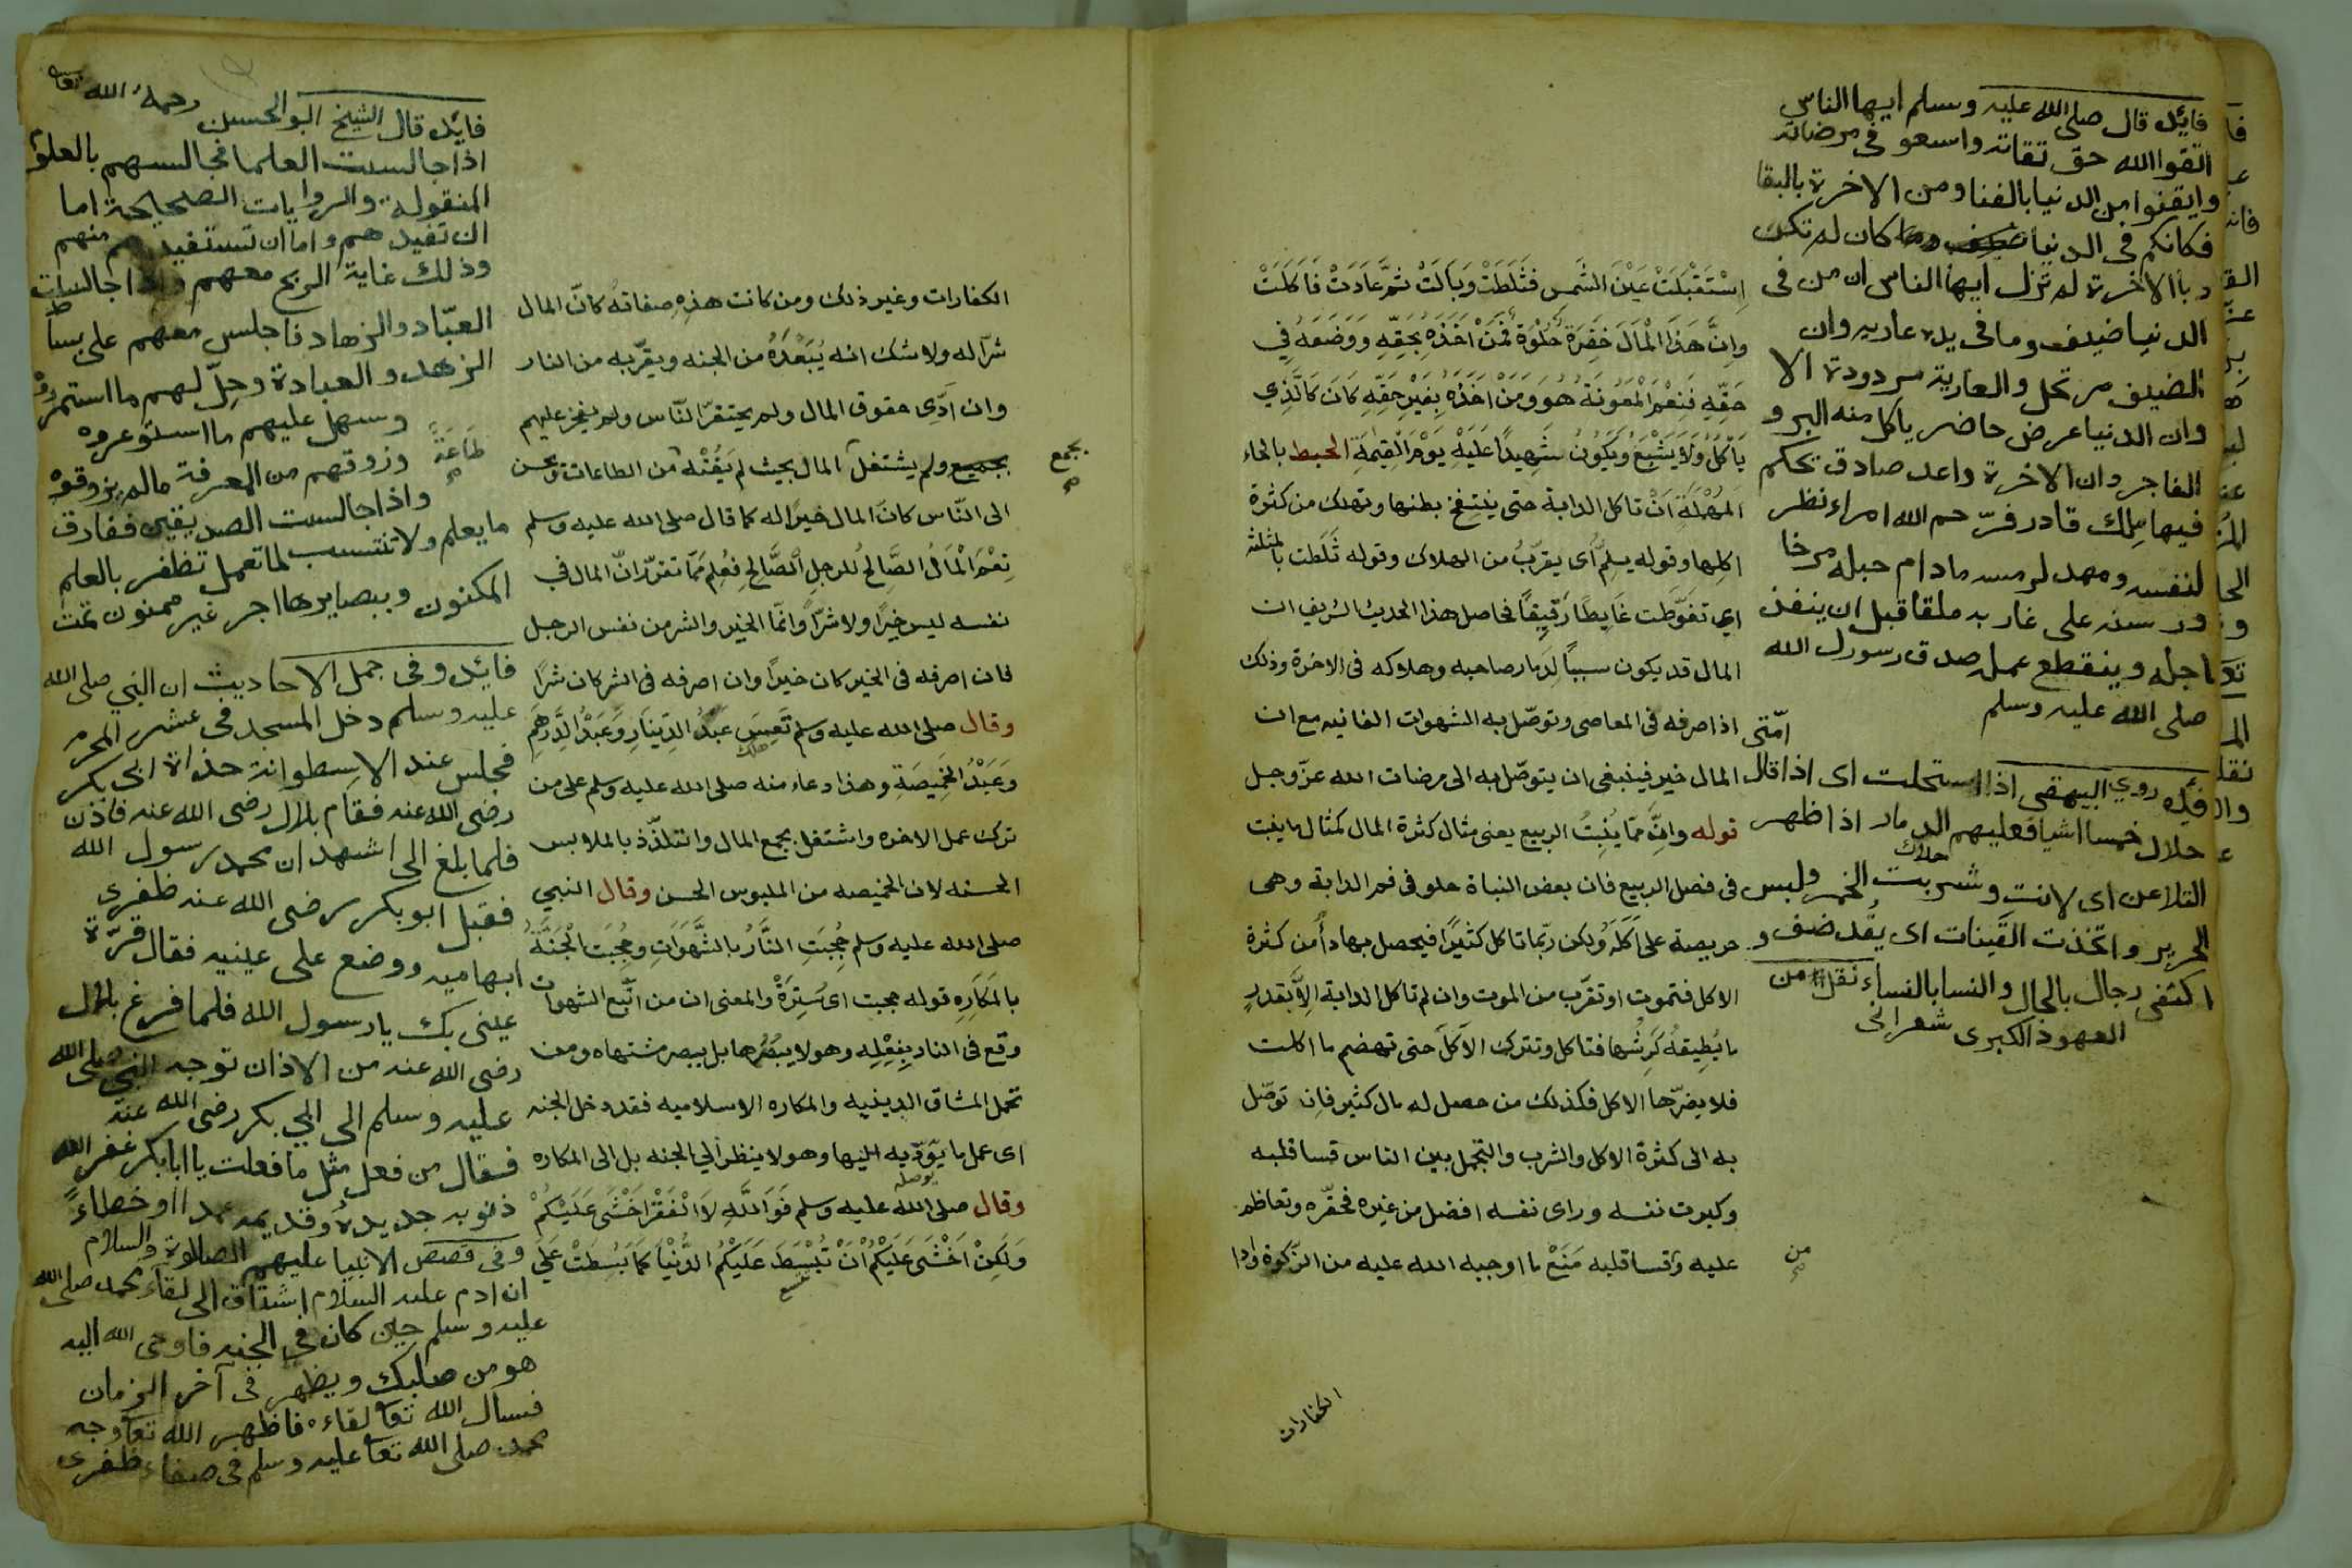 اِسْتَقْبَلَتْ عَيْنَ الشَّمسِ فثَلَطَتْ وَبَالَتْ ثمَّ عَادَتْ فَاَكَلَتْ
وانَّ هَذَا الْمَالَ خَضِرَةٌ حُلْوَةٌ فَمَنْ اَخَذَهُ بِحَقِّهِ وَوَضَعَهُ فِي
حَقِّهِ فَنِعْمَ الْمَعُونَةُ هُوَ وَمَنْ اَخَذَهُ بِغَيْرِ حَقِّهِ كَانَ كَالَّذِي
يَأْكُلُ وَلَا يَشْبَعُ وَيَكُونُ شَهِيدًا عَلَيْهِ يَوْمَ الْقِيٰمَةِ الحبط بالحاء
المُهْمَلَة اَنْ تاكل الدابة حتى ينتفخ بطنها وتهلك من كثرة
اكلِها وقوله يلمُّ اى يقرّبُ من الهلاك وقوله ثَلَطت بالمثلثه
اي تغوّطت غَايِطًا رَقيِقًا فحاصل هذا الحديث الشريف ان
المال قد يكون سببًا لدَمار صاحبه وهلاوكه فى الاخرة وذلك
اذا صرفه فى المعاصى وتوصّل به الشهوات الفانيه مع ان
المال خير فينبغى ان يتوصّل به الى مرضات الله عزّوجل
قوله وانَّ ممّا يُنْبِتُ الربيع يعنى مثال كثرة المال كمثال ما ينبت
فى فصل الربيع فان بعض النباة حلو فى فم الدابة وهى
حريصة على اَكلَهِ ولكن ربّما تاكل كثيرًا فيحصل بها داُ من كثرة
الاكل فتموت او تقرّب من الموت وان لم تاكل الدابة الاَّ بقدر
ما يُطِيقهُ كَرِشُها فتاكل وتترك الاَكلَ حتى تهضم ما اكلت
فلا يضرّها الاكل فكذلك من حصل له مال كثير فاِن توصّل
به الى كثرة الاكل والشرب والتجمل بين الناس قسا قلبه
وكبرت نفسه وراى نفسه افضل من غيره فحقّره وتعاظم
عليه وقسا قلبه مَنَعْ ما اوجبه الله عليه من الزكوة وادا
من صح
الكفارات
فائده قال صلى الله عليه وسلم ايها الناس
اتقوا الله حق تقاته واسعو فى مرضاته
وايقنوا من الدنيا بالفنا ومن الاخرة بالبقا
فكانكم فى الدنيا كان لم تكن
وبالاخرة لم تزل ايها الناس ان من فى
الدنيا ضيف وما فى يده عاريه وان
الضيف مرتحل والعارية مردودة الا
وان الدنيا عرض حاضر ياكل منه البر و
الفاجر وان الاخرة واعد صادق تحكم
فيها ملك قادر فرحم الله امراء نظر
لنفسه ومهد لرمسه مادام حبله مرخا
ورسنه على غاربه ملقا قبل ان ينفذ
اجله وينقطع عمله صدق رسول الله
صلى الله عليه وسلم
فئده روي البيهقى اذا استحلت امّتى اى اذا قال
حلال خمسا اشيا فعليهم الدمار اذا ظهر
هلاك
التلاعن اى لانت وشربت الخمر ولبس
الحرير واتخذت القَينات اى
اكتفى رجال بالرجال والنسا بالنساء نقل من
العهود الكبرى شعرانى
الكفارات وغير ذلك ومن كانت هذه صفاته كاَن المال
شرّاله ولا شك انه يُبَعْدُه من الجنه ويقرّبه من النار
وان ادَّى حقوق المال ولم يحتقرّ النّاس ولم يفخر عليهم
بجميع ولم يشتغل المال بحيث لم يَفُتْه من الطاعات ويحسن
بجمع صح
طَاعَةً صح
الى النّاس كانّ المال خيرًا له كما قال صلى الله عليه وسلم
نِعْمَ الْمَالُ الصَّالِحُ للرجلِ الصَّالحِ فعُلِم ممّا تقرّر انّ المال فى
نفسه ليس خيرًا ولا شرّاً وانّما الخير والشر من نفس الرجل
فان اصرفه فى الخير كان خيرًا وان اصرفه فى الشر كان شرًا
وقال صلى الله عليه وسلم تَعِسَ عَبدُ الدّينَارِ وَعَبْدُ الدِّرهَمِ
هلك
وَعَبْدُ الخَمِيصَةِ وهذا دعاء منه صلى الله عليه وسلم على من
ترك عمل الاخره واشتغل بجمع المال والتلذّذ بالملابس
الحسنه لان الخميصه من الملبوس الحسن وقال النبي
صلى الله عليه وسلم حُجِبَتِ النَّارُ بالشَّهَوَاتِ وحُجِبَت الجَنّةُ
بالمكَارِهِ قوله حجبت اى سَتِرَةْ والمعنى ان من اتّبع الشهوات
وقع فى النار بفِعْلِهِ وهو لا يبصُرها بل يبصر مشتهاه ومن
تحمل المشاق الدينيه والمكاره الاسلاميه فقد دخل الجنه
اى عمل ما يَؤدّيه اليها وهو لا ينظر الي الجنه بل الى المكاره
يوصله
وقال صلى الله عليه وسلم فَوَاللَّهِ لاَ الْفَقْرَ اَخْشَى عَلَيْكُمْ
وَلَكِنْ اَخْشَى عَلَيْكُمْ اَنْ تُبْسَطَ عَلَيْكُمُ الدُّنْيَا كَمَا بُسِطَتْ عَلَي
فائده قال الشيخ ابو الحسن رحمه الله تعا
اذا جالست العلما فجالسهم بالعلوم
المنقولة والروايات الصحيحة اما
ان تفيدهم واما ان تستفيد منهم
وذلك غاية الربح معهم واذا جالست
العبّاد والزهاد فاجلس معهم على بساط
الزهد والعبادة وحلّ لهم ما استمرروه
وسهل عليهم ما استوعروه
وذوقهم من المعرفة مالم يذوقوه
واذا جالست الصديقين ففارق
ما يعلم ولا تنتسب لما تعمل تظفر بالعلم
المكنون وببصايرها اجر غير ممنون تمت
فائده وفى جمل الاحاديث ان النبي صلى الله
عليه وسلم دخل المسجد فى عشر المحرم
فجلس عند الاسطوانة حذاة ابى بكر
رضى الله عنه فقام بلال رضى الله عنه فاذن
فلما بلغ الى اشهد ان محمد رسول الله
فقبل ابو بكر رضى الله عنه ظفرى
ابهاميه ووضع على عينيه فقال قرّة
عينى بك يارسول الله فلما فرغ بلال
رضى الله عنه من الاذان توجه النبي صلى الله
عليه وسلم الى ابي بكر رضى الله عنه
فقال من فعل مثل ما فعلت يا ابابكر غفر الله
ذنوبه جديدهُ وقديمه عمدا او خطاءً
وفى قصص الانبيا عليهم الصلاوة والسلام
ان ادم عليه السلام اشتاق الى لقاء محمد صلى الله
عليه وسلم حين كان في الجنه فاوحى الله اليه
هو من صلبك ويظهر فى آخر الزمان
فسال الله تعا لقاءه فاظهر الله تعا وجه
محمد صلى الله تعا عليه وسلم فى صفاء ظفرى